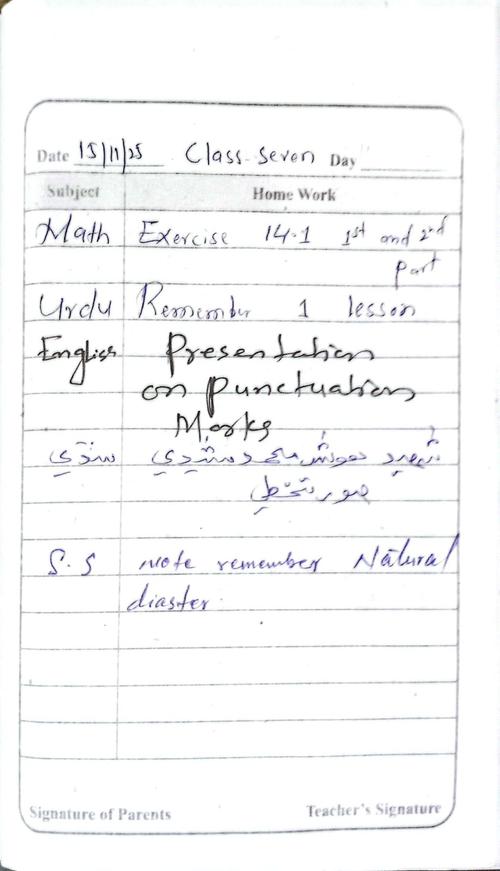 Date 15/11/25 Class-Seven Day
Subject Home Work
Math Exercise 14.1 1st and 2nd
part
Urdu Remember 1 lesson
English Presentation
on Punctuation
Marks
سنڌي شهيد هوش محمد شيدي
S.S note remember Natural
diaster.
Signature of Parents Teacher's Signature